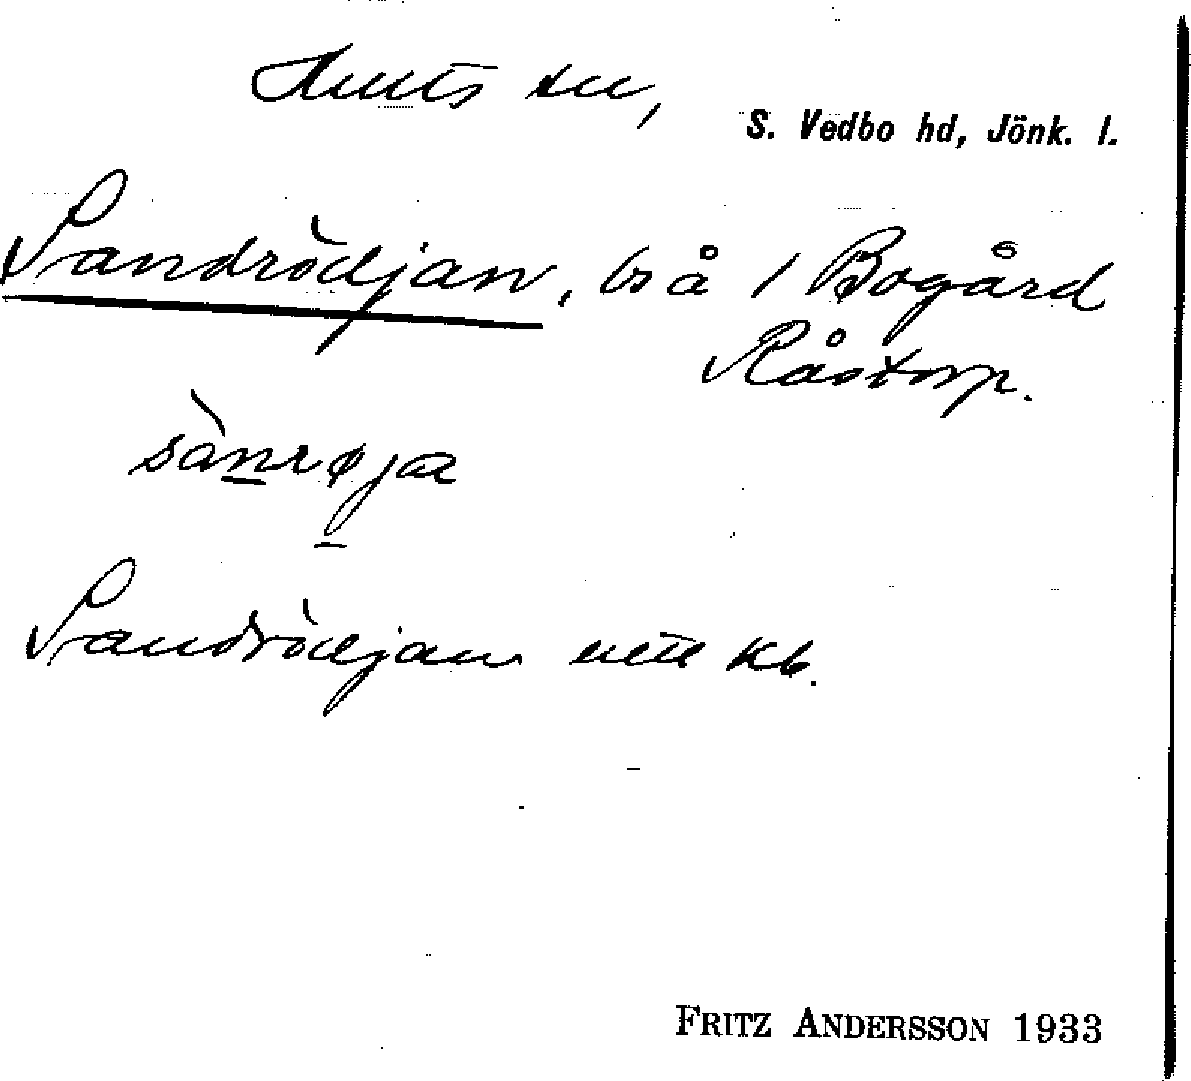 Hults sn,
S. Vedbo hd, Jönk. l.
Sandrödjan, bs å 1 Bogård
Råstorp.
sànrøja
Sandrödjan enl kb.
FRITZ ANDERSSON 1933